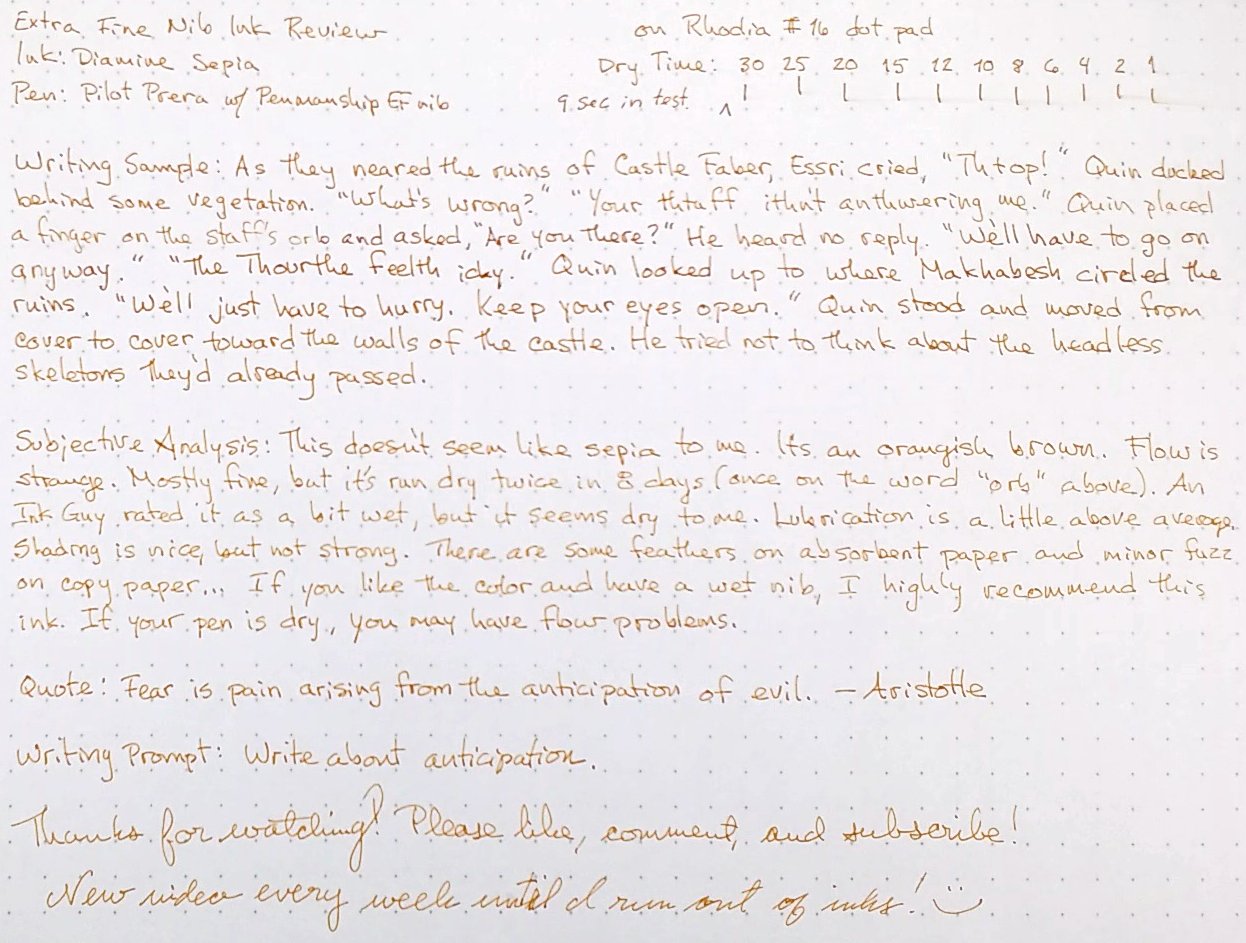 Extra Fine Nib Ink Review on Rhodia #16 dot pad
Ink: Diamine Sepia Dry Time: 30 25 20 15 12 10 8 6 4 2 1
Pen: Pilot Prera w/ Penmanship EF nib 9 sec in test ^
Writing Sample: As they neared the ruins of Castle Faber, Essri cried, "Thtop!" Quin ducked
behind some vegetation. "What's wrong?" "Your thtaff ithn't anthwering me." Quin placed
a finger on the staff's orb and asked, "Are you there?" He heard no reply. "We'll have to go on
anyway." "The Thourthe feelth icky." Quin looked up to where Makhabesh circled the
ruins. "We'll just have to hurry. Keep your eyes open." Quin stood and moved from
cover to cover toward the walls of the castle. He tried not to think about the headless
skeletons they'd already passed.
Subjective Analysis: This doesn't seem like sepia to me. It's an orangish brown. Flow is
strange. Mostly fine, but it's run dry twice in 8 days (once on the word "orb" above). An
Ink Guy rated it as a bit wet, but it seems dry to me. Lubrication is a little above average.
Shading is nice, but not strong. There are some feathers on absorbent paper and minor fuzz
on copy paper... If you like the color and have a wet nib, I highly recommend this
ink. If your pen is dry, you may have flow problems.
Quote: Fear is pain arising from the anticipation of evil. - Aristotle
Writing Prompt: Write about anticipation.
Thanks for watching! Please like, comment, and subscribe!
New video every week until I run out of inks! :)